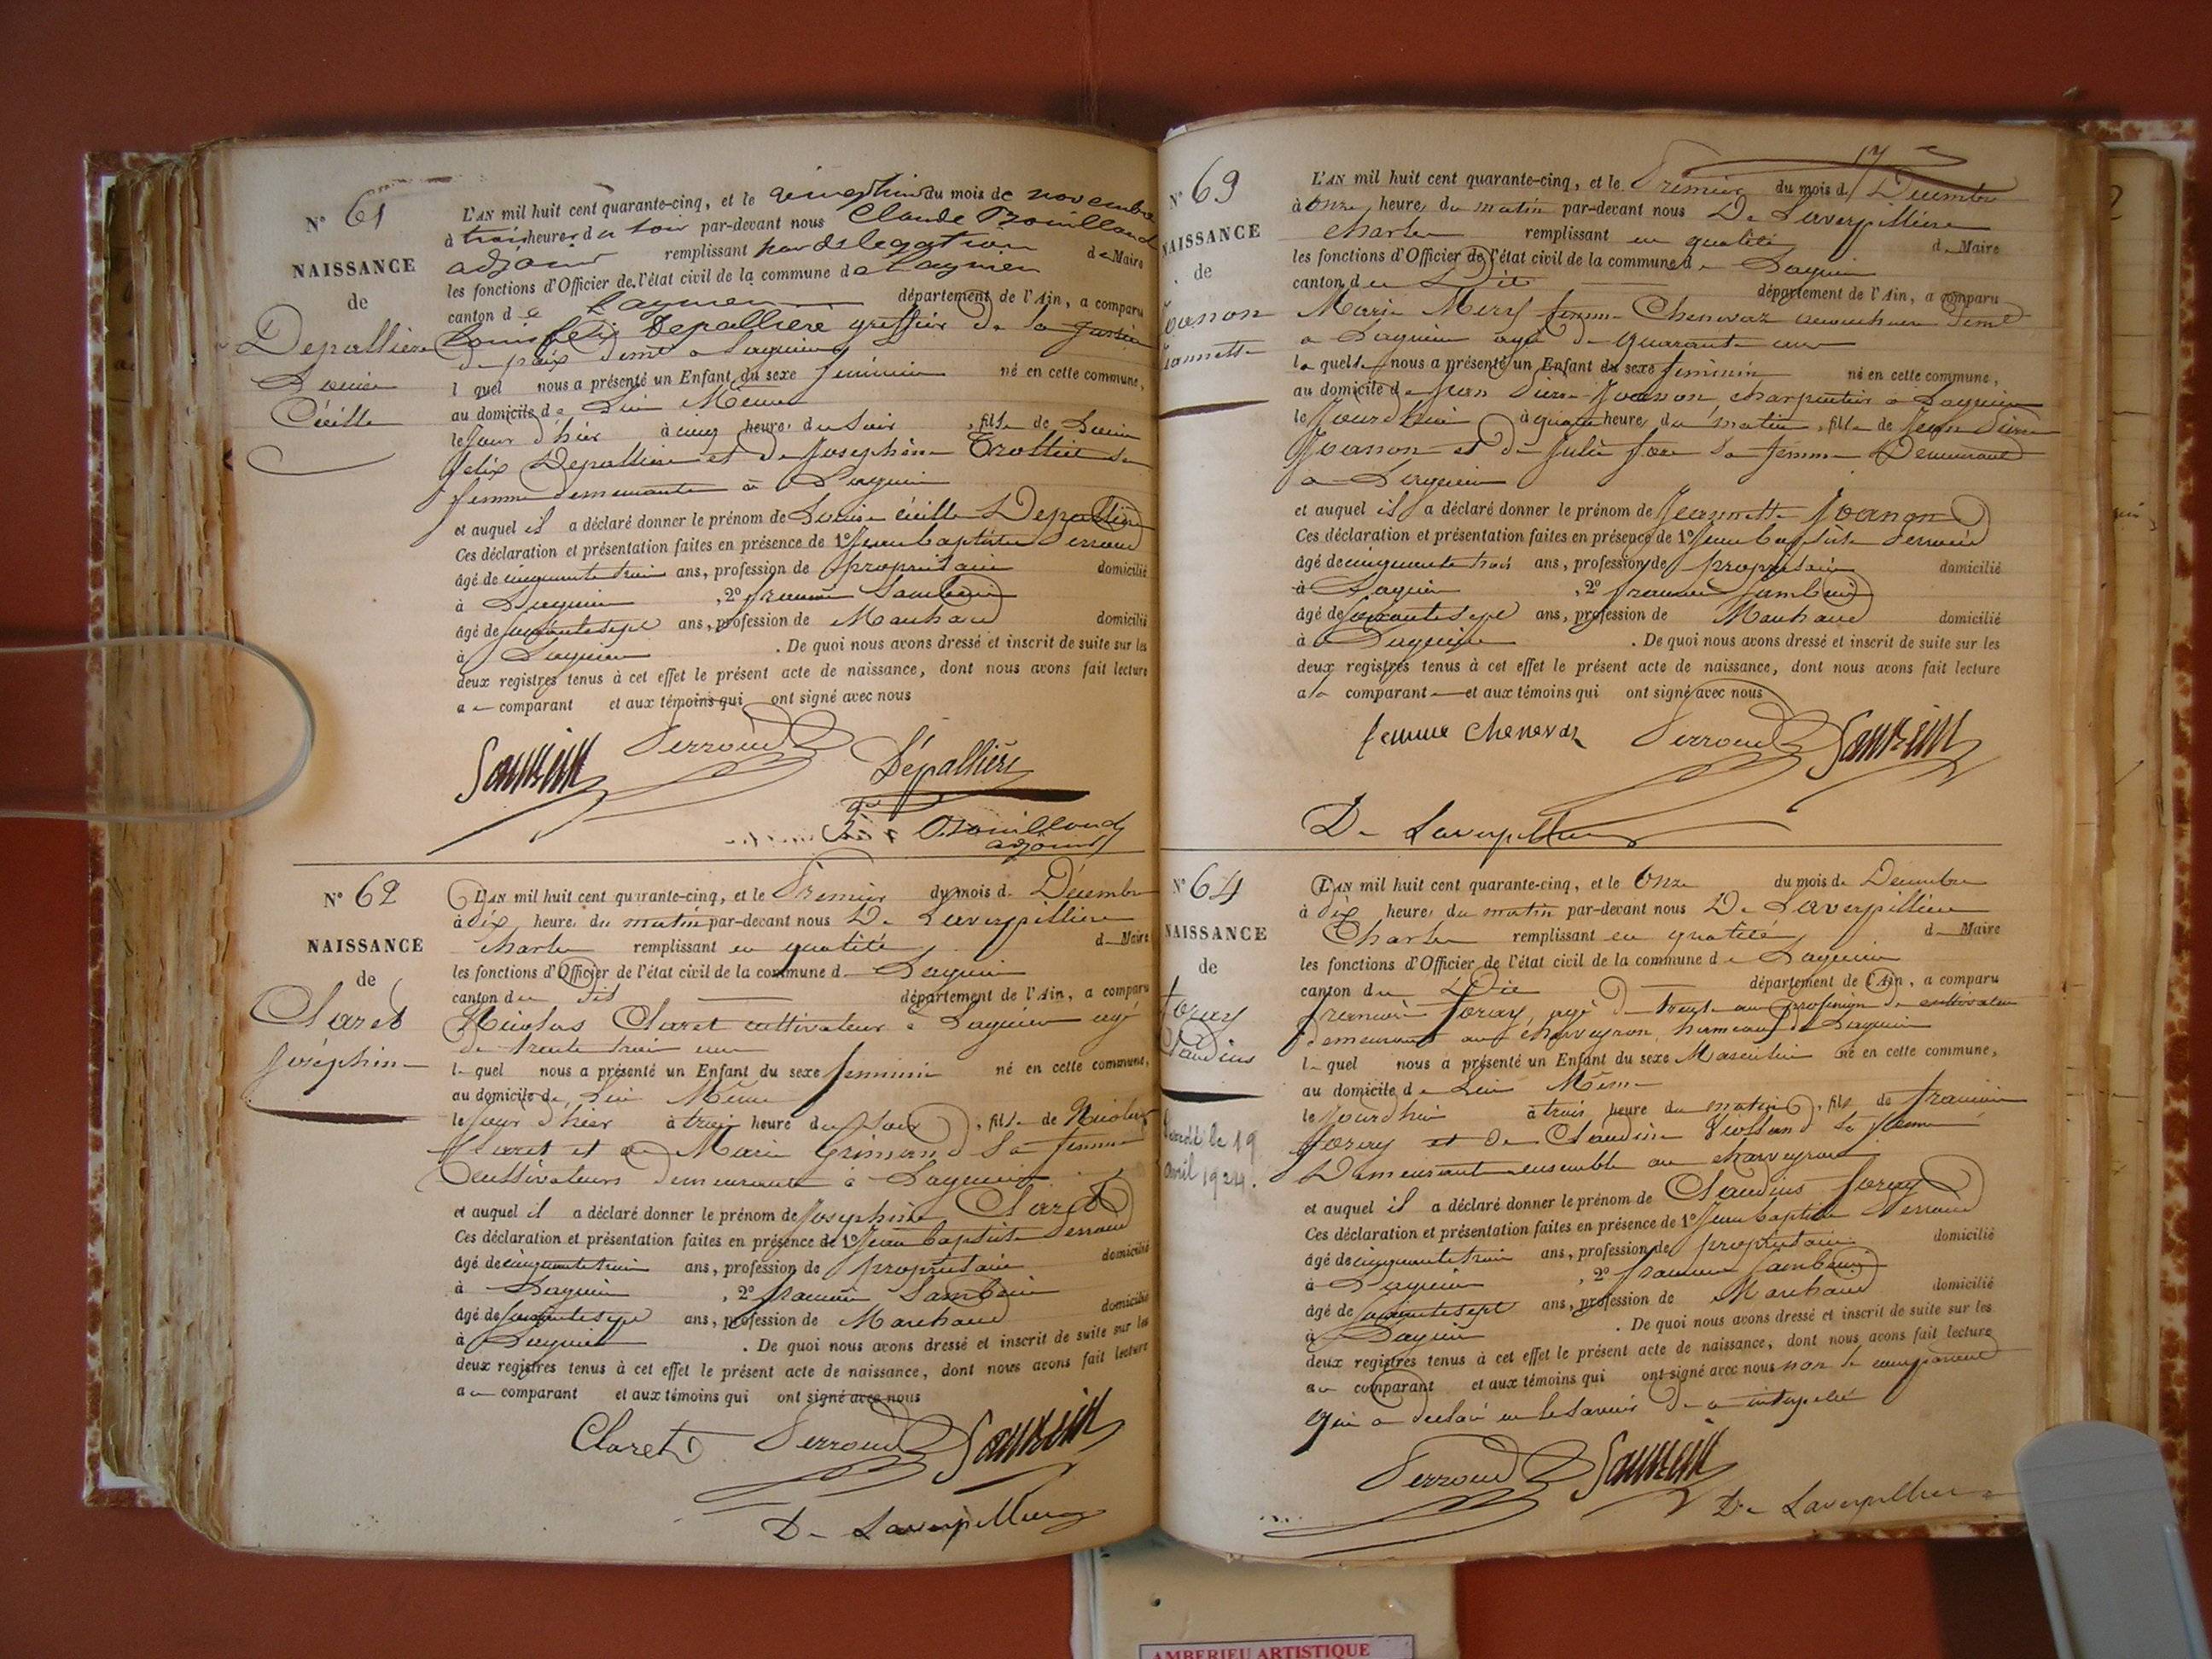 N° 61
NAISSANCE
de
Depallière
Louise
Cécille
L'AN mil huit cent quarante-cinq, et le vingt huit du mois de novembre
à trois heures du soir par-devant nous Claude Trouilloud
adjoint remplissant par délégation de Maire
les fonctions d'Officier de l'état civil de la commune de Lagnieu
canton de Lagnieu département de l'Ain, a comparu
Louis félix Depallière greffier de la justice
de paix demt a Lagnieu
lequel nous a présenté un Enfant du sexe feminin né en cette commune,
au domicile de Lui Meme
le jour d'hier à cinq heures du soir, fille de Louis
felix Depalliere et de Josephine Trolliet sa
femme demeurante à Lagnieu
et auquel il a déclaré donner le prénom de Louise cécille Depallière
Ces déclaration et présentation faites en présence de 1° Jean baptiste Perroud
âgé de cinquante trois ans, profession de propriétaire domicilié
à Lagnieu, 2° francois Sambuin
âgé de soixante sept ans, profession de Marchand domicilié
à Lagnieu. De quoi nous avons dressé et inscrit de suite sur les
deux registres tenus à cet effet le présent acte de naissance, dont nous avons fait lecture
au comparant et aux témoins qui ont signé avec nous
Perroud Dépallière
Trouilloud
adjoint
N° 62
NAISSANCE
de
Claret
Joséphine
L'AN mil huit cent quarante-cinq, et le Premier du mois de Décembre
à dix heures du matin par-devant nous De Laverpillière
Charles remplissant en qualité de Maire
les fonctions d'Officier de l'état civil de la commune de Lagnieu
canton du dit département de l'Ain, a comparu
Nicolas Claret cultivateur à Lagnieu agé
de trente trois ans
lequel nous a présenté un Enfant du sexe feminin né en cette commune,
au domicile de Lui Meme
le jour d'hier à trois heures du soir, fille de Nicolas
Claret et de Marie Grimand Sa femme
Cultivateurs demeurante à Lagnieu
et auquel il a déclaré donner le prénom de Josephine Claret
Ces déclaration et présentation faites en présence de 1° Jean baptiste Perroud
âgé de cinquante trois ans, profession de propriétaire domicilié
à Lagnieu, 2° francois Sambuin
âgé de soixante sept ans, profession de Marchand domicilié
à Lagnieu. De quoi nous avons dressé et inscrit de suite sur les
deux registres tenus à cet effet le présent acte de naissance, dont nous avons fait lecture
au comparant et aux témoins qui ont signé avec nous
Claret Perroud
De Laverpilliere
N° 63
NAISSANCE
de
Joanon
Jeannette
L'AN mil huit cent quarante-cinq, et le Premier du mois de Decembre
à onze heures du matin par-devant nous De Laverpillière
Charles remplissant en qualité de Maire
les fonctions d'Officier de l'état civil de la commune de Lagnieu
canton du Dit département de l'Ain, a comparu
Marie Mery femme Chenavaz accoucheuse demt
a Lagnieu agé de quarante ans
laquelle nous a présenté un Enfant du sexe feminin né en cette commune,
au domicile de Jean Pierre Joanon charpentier à Lagnieu
le Jourd'hui à quatre heures du matin, fille de Jean Pierre
Joanon et de Julie fore Sa femme Demeurant
a Lagnieu
et auquel il a déclaré donner le prénom de Jeannette Joanon
Ces déclaration et présentation faites en présence de 1° Jean baptiste Perroud
âgé de cinquante trois ans, profession de propriétaire domicilié
à Lagnieu, 2° francois Sambuin
âgé de soixante sept ans, profession de Marchand domicilié
à Lagnieu. De quoi nous avons dressé et inscrit de suite sur les
deux registres tenus à cet effet le présent acte de naissance, dont nous avons fait lecture
a la comparante et aux témoins qui ont signé avec nous
femme Chenavaz Perroud
De Laverpilliere
N° 64
NAISSANCE
de
foray
Claudius
Décédé le 19
Avril 1924.
L'AN mil huit cent quarante-cinq, et le Onze du mois de Decembre
à dix heures du matin par-devant nous De Laverpillière
Charles remplissant en qualité de Maire
les fonctions d'Officier de l'état civil de la commune de Lagnieu
canton du Dit département de l'Ain, a comparu
francois foray, agé de trente ans profession de cultivateur
demeurant au charveyron, hameau de Lagnieu
lequel nous a présenté un Enfant du sexe Masculin né en cette commune,
au domicile de Lui Même
le Jourd'hui à trois heures du matin, fils de francois
foray et de Claudine Viossand Sa femme
Demeurant ensemble au charveyron
et auquel il a déclaré donner le prénom de Claudius foray
Ces déclaration et présentation faites en présence de 1° Jean baptiste Perroud
âgé de cinquante trois ans, profession de propriétaire domicilié
à Lagnieu, 2° francois Sambuin
âgé de soixante sept ans, profession de Marchand domicilié
à Lagnieu. De quoi nous avons dressé et inscrit de suite sur les
deux registres tenus à cet effet le présent acte de naissance, dont nous avons fait lecture
au comparant et aux témoins qui ont signé avec nous non le comparant
qui a déclaré ne le savoir de ce interpellé
Perroud
De Laverpilliere
AMBERIEU ARTISTIQUE